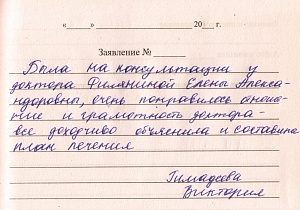 «___» ____________ 20__ г.
Заявление № ______
Была на консультации у
доктора Филяниной Елены Алексан-
ндоровны, очень понравилось отноше-
ние и грамотность доктора -
все доходчиво объяснила и составила
план лечения
Гимадеева
Виктория